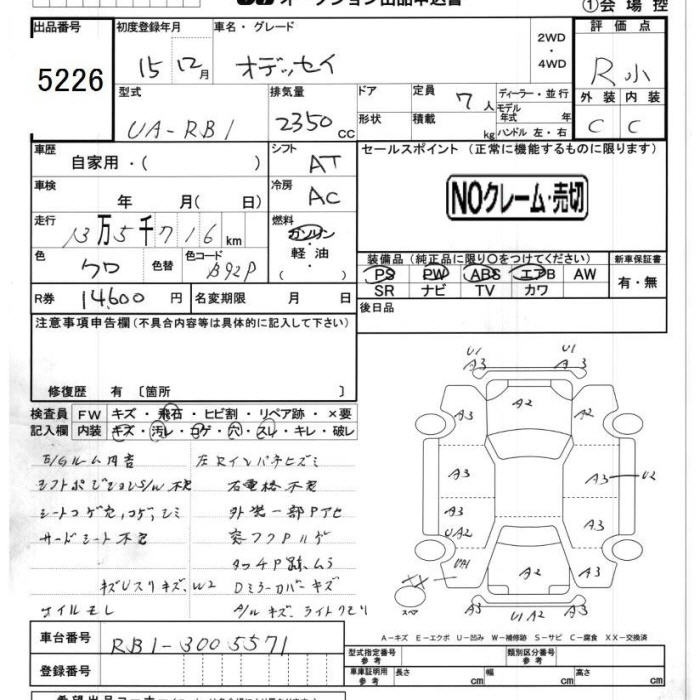 ①会場控
出品番号 初度登録年月 車名・グレード 2WD・4WD 評価点
5226 15 12月 オデッセイ R小
型式 排気量 ドア 定員 ディーラー・並行 外装 内装
UA-RB1 2350cc 7人 モデル年式 年 C C
形状 積載 kg ハンドル 左・右
車歴 シフト セールスポイント (正常に機能するものに限ります)
自家用・( ) AT
車検 冷房 NOクレーム・売切
年 月( 日) AC
走行 燃料
13万5千716km ガソリン・軽油・( )
色 色替 色コード 装備品(純正品に限り○をつけてください) 新車保証書
クロ B92P PS PW ABS エアB AW 有・無
R券 14600円 名変期限 月 日 SR ナビ TV カワ
注意事項申告欄(不具合内容等は具体的に記入して下さい) 後日品
修復歴 有〔箇所 〕
検査員 FW キズ・飛石・ヒビ割・リペア跡・×要
記入欄 内装 キズ・汚レ・コゲ・穴・スレ・キレ・破レ
E/Gルーム内 左Rインパネヒズミ
シフトポジションS/W不良 右電格不良
シート コゲ穴,コゲ,シミ 外装一部Pアセ
サードシート不良
タッチP跡、ムラ
キズUスリキズ、W2 Dミラーカバーキズ
オイルモレ A/Wキズ、ライトクモリ
U1 A3 U1 A3
A3 A2 A2
A3 A3 U2
A3 A3
UA2
UA1 A2 A3
スペア A3 U1A2 A3
A-キズ E-エクボ U-凹み W-補修跡 S-サビ C-腐食 XX-交換済
車台番号 RB1-3005571 型式指定番号 参考 類別区分番号 参考
登録番号 車庫証明用 参考 長さ cm 幅 cm 高さ cm